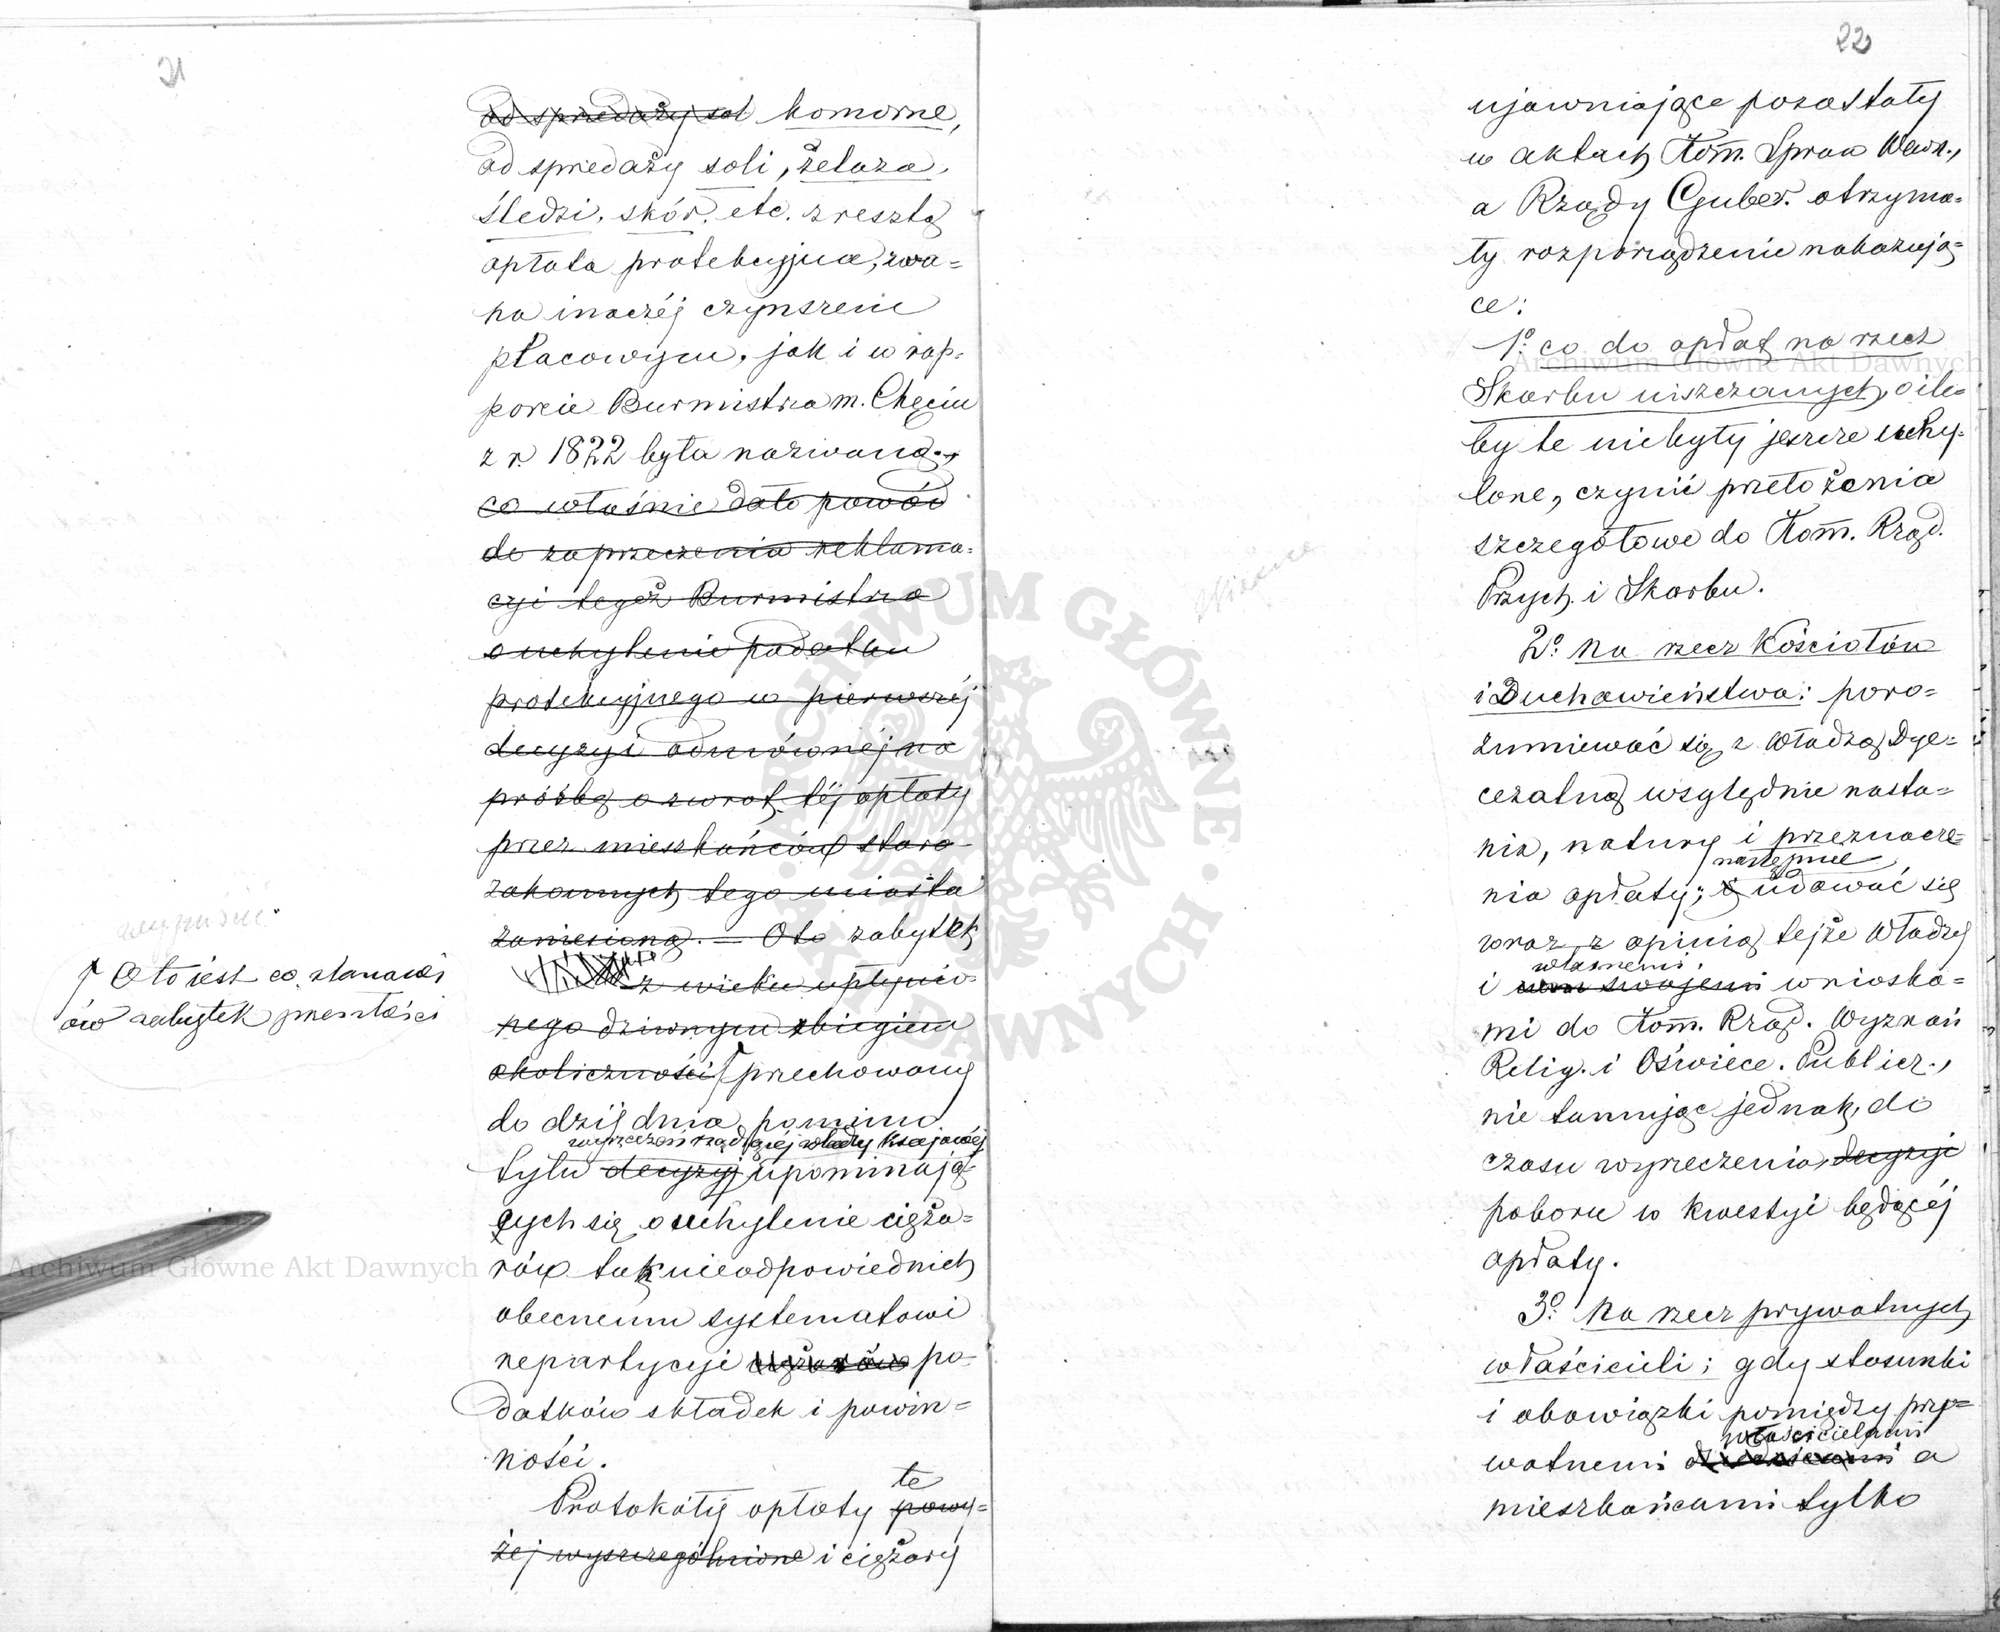 21
od sprzedaży sol komorne,
od sprzedaży soli, żelaza,
śledzi, skór, etc. zresztą
opłata protekcyjna, zwa=
na inaczéj czynszem
placowym, jak i w rap=
porcie Burmistrza m. Chęcin
z r. 1822 była nazwaną,
co właśnie dało powód
do zaprzeczenia reklama=
cyi tegoż Burmistrza
o uchylenie podatku
protekcyjnego w pierwszéj
decyzyi odmównéj na
prośbę o zwrot téj opłaty
przez mieszkańców staro-
zakonnych tego miasta
zaniesioną. — Oto zabytek
z wieku upłynio-
nego dziwnym zbiegiem
okoliczności przechowany
Oto jest co stanowi
ów zabytek przeszłości
do dziś dnia, pomimo
wyrzeczeń rządzącéj władzy krajowéj
tylu decyzyj upominają=
cych się o uchylenie cięża=
rów tak nieodpowiednich
obecnemu systematowi
repartycyi ciężarów po-
datków składek i powin=
ności.
te
Protokóły opłaty powy=
żej wyszczególnione i ciężary
22
ujawniające pozostały
w aktach Kom. Spraw Wewn.,
a Rządy Guber. otrzyma=
ły rozporządzenie nakazują=
ce:
1o. co do opłat na rzecz
Skarbu uiszczanych, o ile=
by te niebyły jeszcze uchy=
lone, czynić przełożenia
szczegółowe do Kom. Rząd.
Przych. i Skarbu.
2o. na rzecz Kościołów
i Duchowieństwa: poro=
zumiewać się z Władzą Dye=
cezalną względnie nasta=
nia, natury i przeznacze=
następnie
nia opłaty; i udawać się
wraz z opinią tejże Władzy
własnemi
i swojemi wnioska=
mi do Kom. Rząd. Wyznań
Relig. i Oświece. Publicz.,
nie tamując jednak, do
czasu wyrzeczenia, decyzyi
poboru w kwestyi będącéj
opłaty.
3o. Na rzecz prywatnych
właścicieli; gdy stosunki
i obowiązki pomiędzy pry=
właścicielami
watnemi dziedzicami a
mieszkańcami tylko
Archiwum Główne Akt Dawnych
Archiwum Główne Akt Dawnych
ARCHIWUM GŁÓWNE · AKT DAWNYCH ·